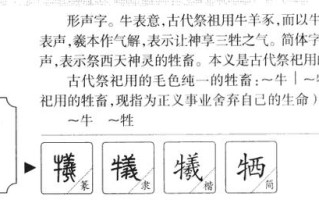 形声字。牛表意,古代祭祖用牛羊豕,而以牛
表声,羲本作气解,表示让神享三牲之气。简体字
声,表示祭西天神灵的牲畜。本义是古代祭祀用
古代祭祀用的毛色纯一的牲畜:~牛|~
祀用的牲畜,现指为正义事业舍弃自己的生命)
~牛 ~牲
犧 篆 犧 隶 犧 楷 牺 简